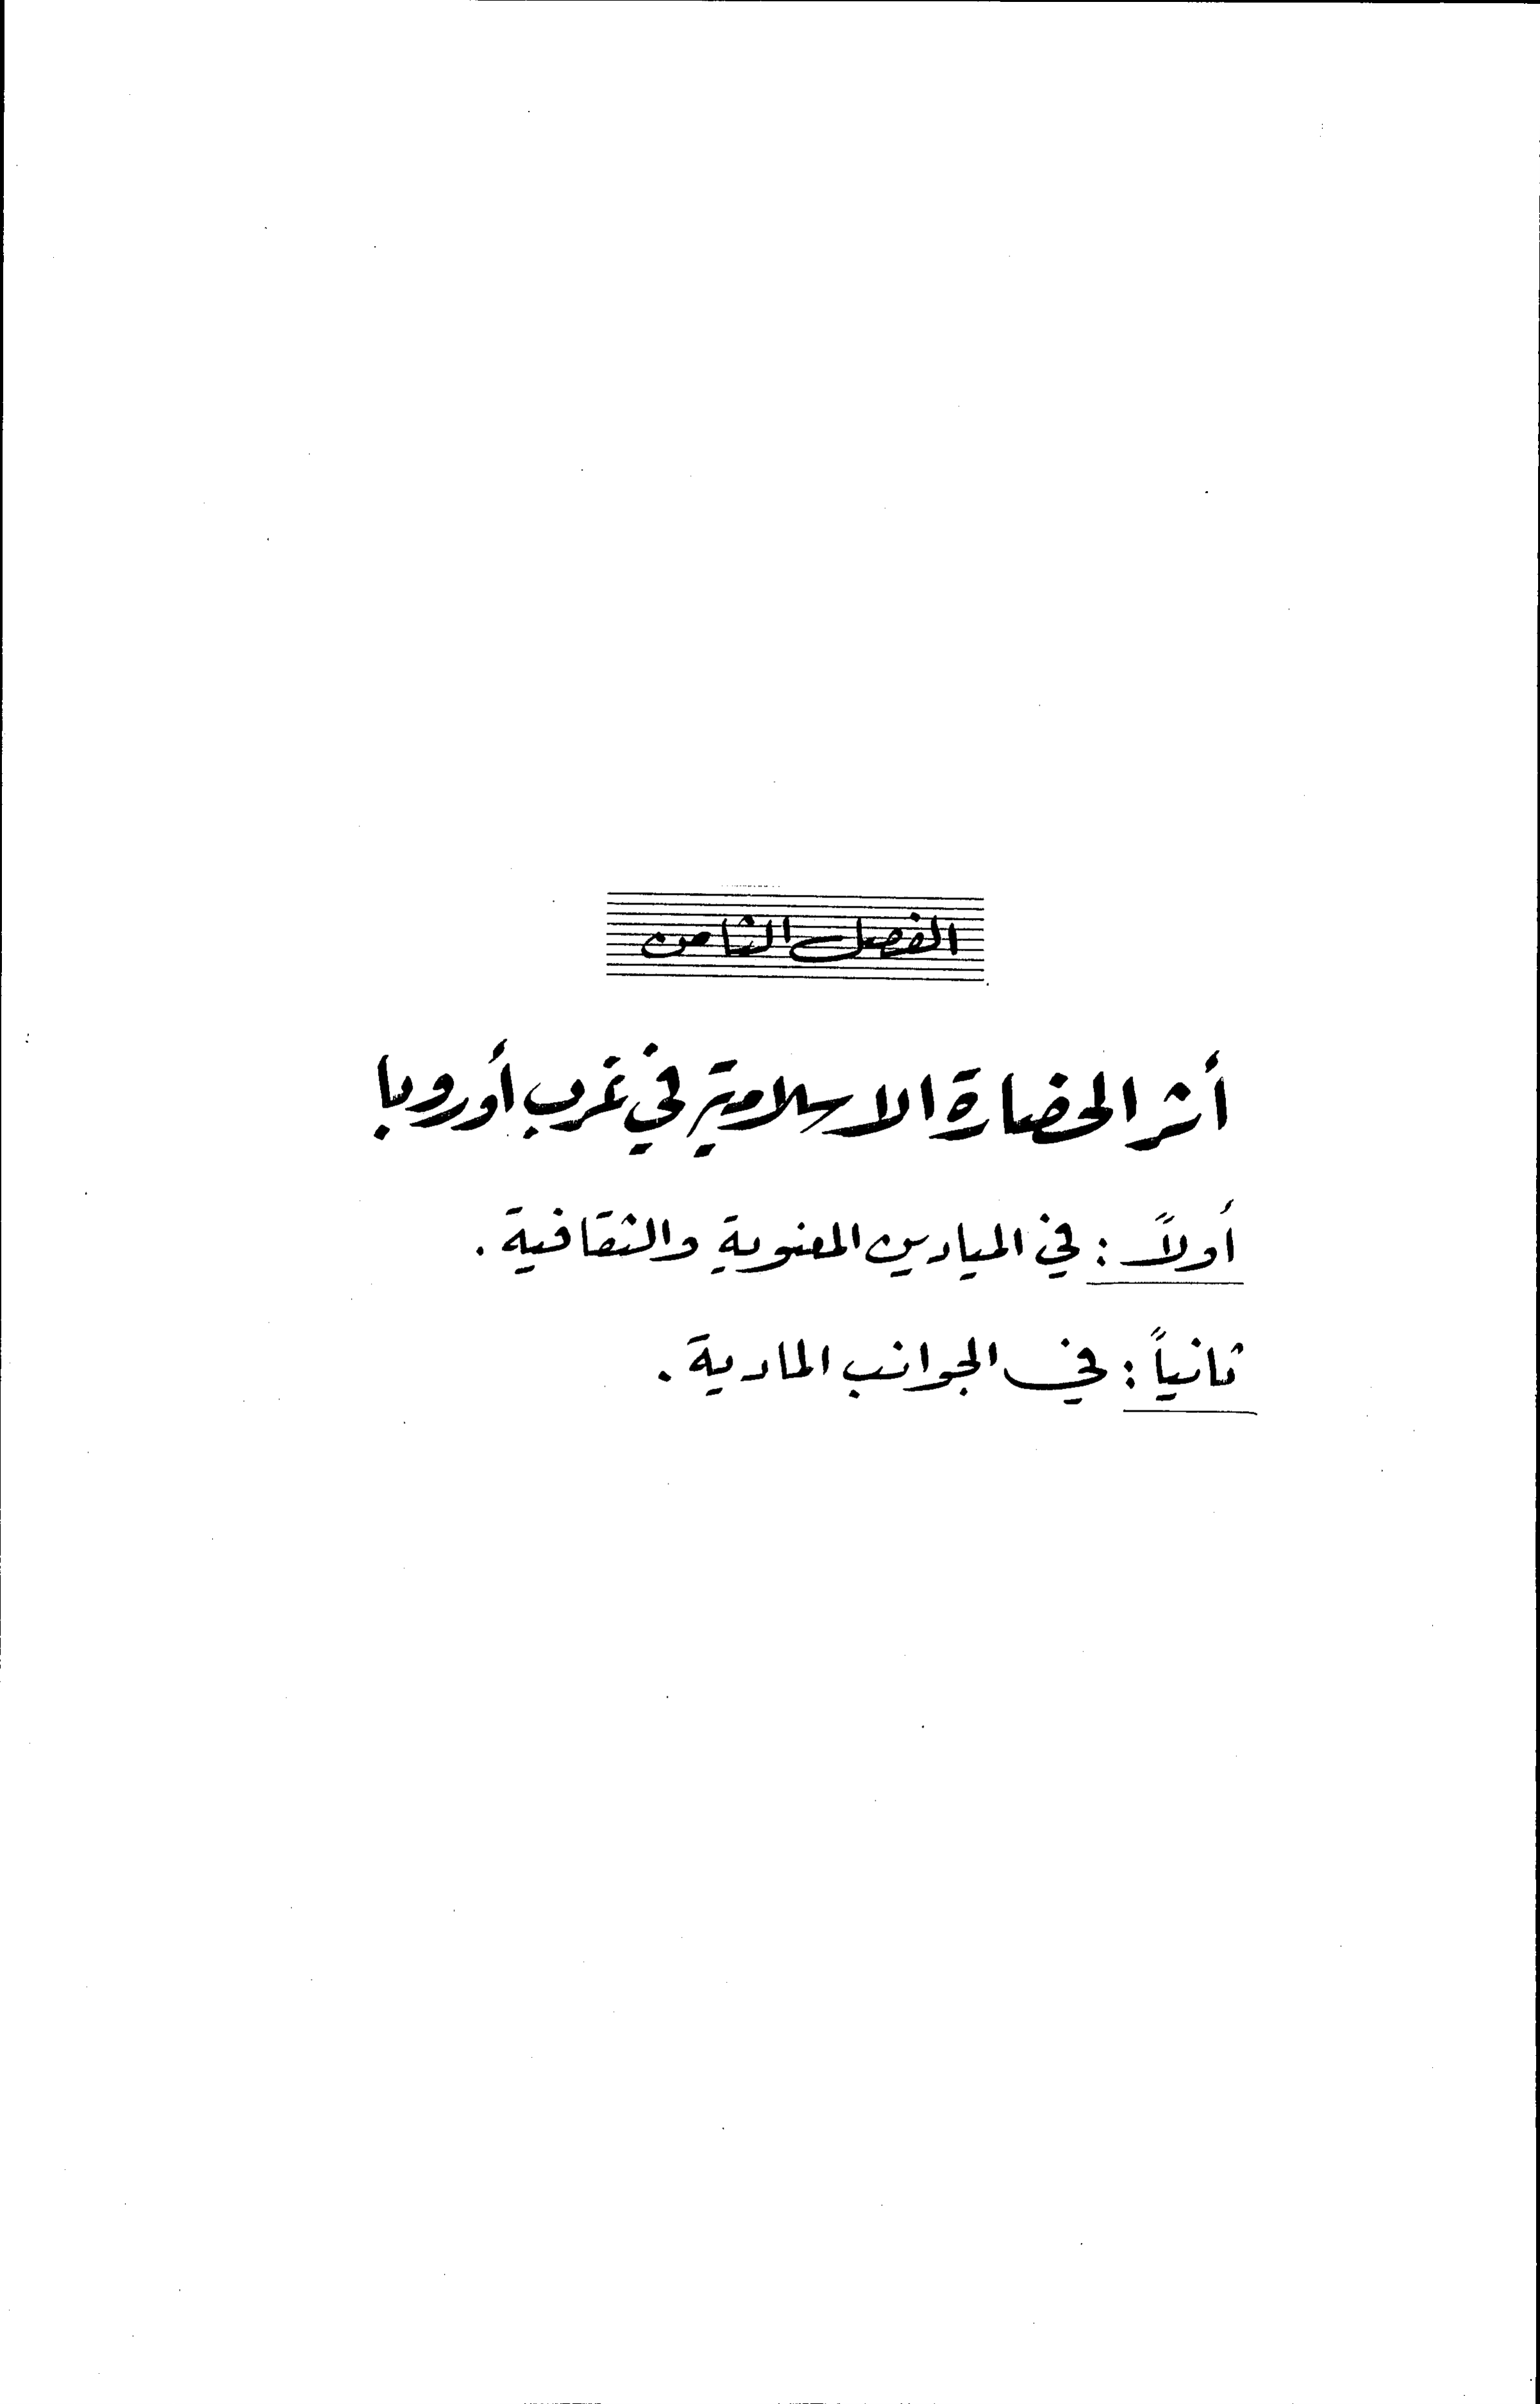 الفصل الثامن
أثر الحضارة الاسلامية في غرب أوروبا
أولاً : في الميادين المعنوية والثقافية .
ثانياً : في الجوانب المادية .